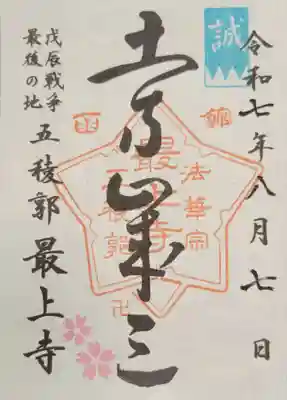 誠
令和七年八月七日
土方歳三
最上寺
法華宗
五稜郭
卍
戊辰戦争
最後の地
五稜郭 最上寺